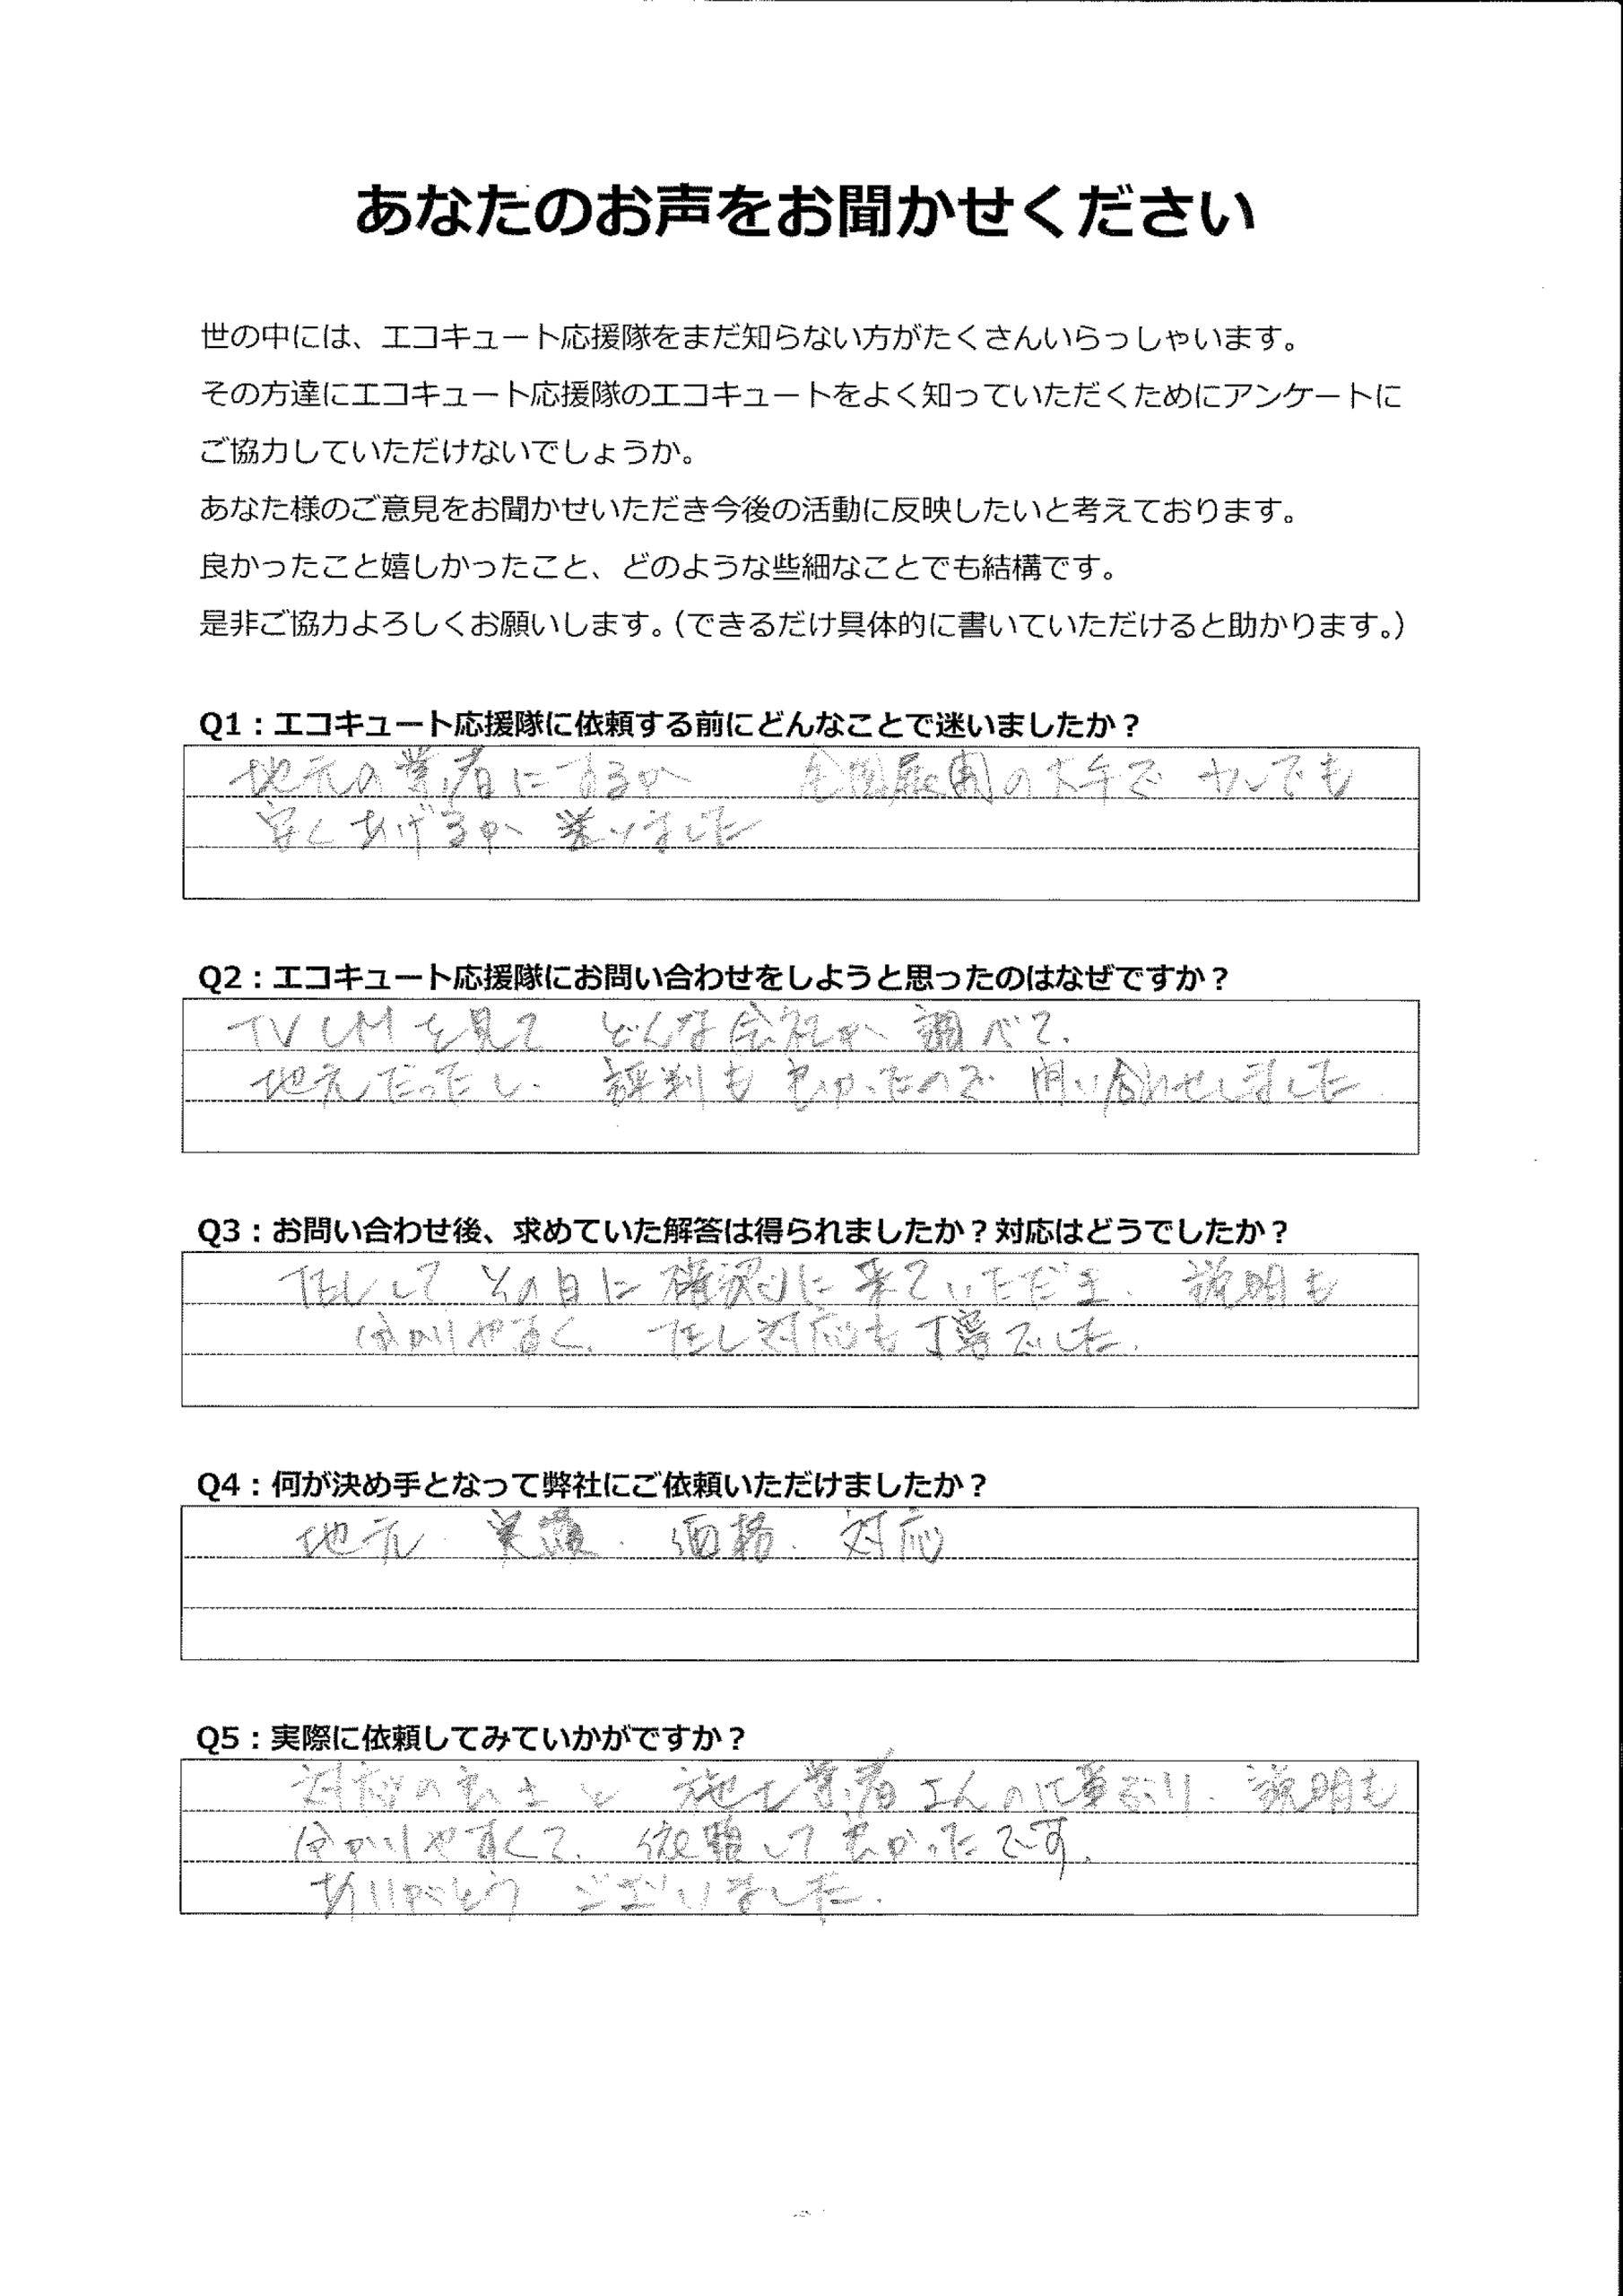 あなたのお声をお聞かせください
世の中には、エコキュート応援隊をまだ知らない方がたくさんいらっしゃいます。
その方達にエコキュート応援隊のエコキュートをよく知っていただくためにアンケートに
ご協力していただけないでしょうか。
あなた様のご意見をお聞かせいただき今後の活動に反映したいと考えております。
良かったこと嬉しかったこと、どのような些細なことでも結構です。
是非ご協力よろしくお願いします。（できるだけ具体的に書いていただけると助かります。）
Q1：エコキュート応援隊に依頼する前にどんなことで迷いましたか？
地元の業者にするか 全国展開の大手で 少しでも
安くあげるか 迷いました
Q2：エコキュート応援隊にお問い合わせをしようと思ったのはなぜですか？
TV CMを見て どんな会社か 調べて、
地元だったし、評判も 良かったので 問い合わせしました
Q3：お問い合わせ後、求めていた解答は得られましたか？対応はどうでしたか？
して その日に 確認に 来ていただき、説明も
分かりやすく、 対応も 丁寧でした。
Q4：何が決め手となって弊社にご依頼いただけましたか？
地元、実績、価格、対応
Q5：実際に依頼してみていかがですか？
対応の良さと 施工業者さんの仕事ぶり、説明も
分かりやすくて、依頼して 良かったです。
ありがとう ございました。